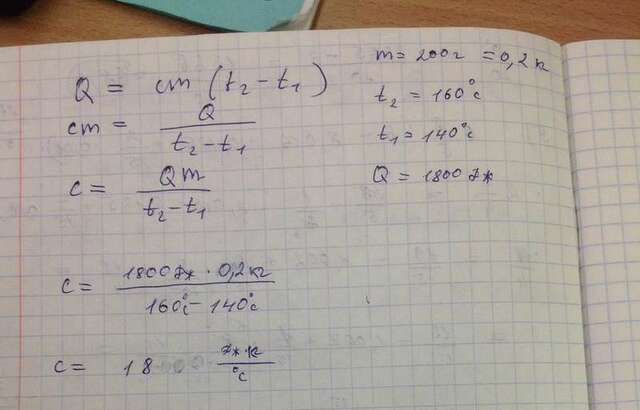 Q = cm (t₂ - t₁)
cm = Q / (t₂ - t₁)
c = Qm / (t₂ - t₁)
c = 1800 Дж · 0,2 кг / (160°C - 140°C)
c = 18 Дж·кг / °C
m = 200 г = 0,2 кг
t₂ = 160°C
t₁ = 140°C
Q = 1800 Дж